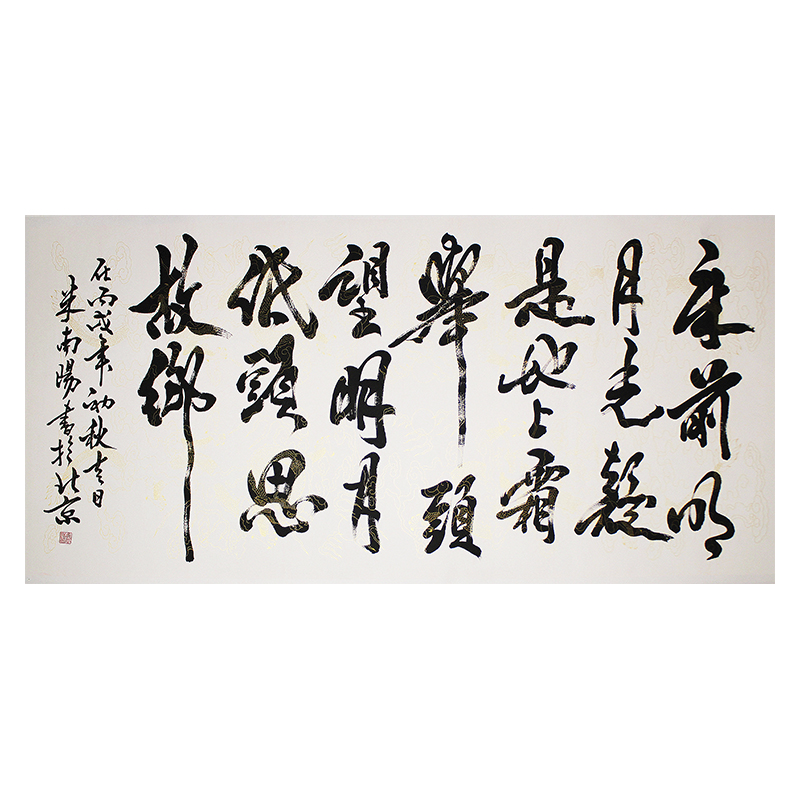 床前明
月光疑
是地上霜
舉頭
望明月
低頭思
故鄉
在丙戌年初秋吉日
米南陽書於北京